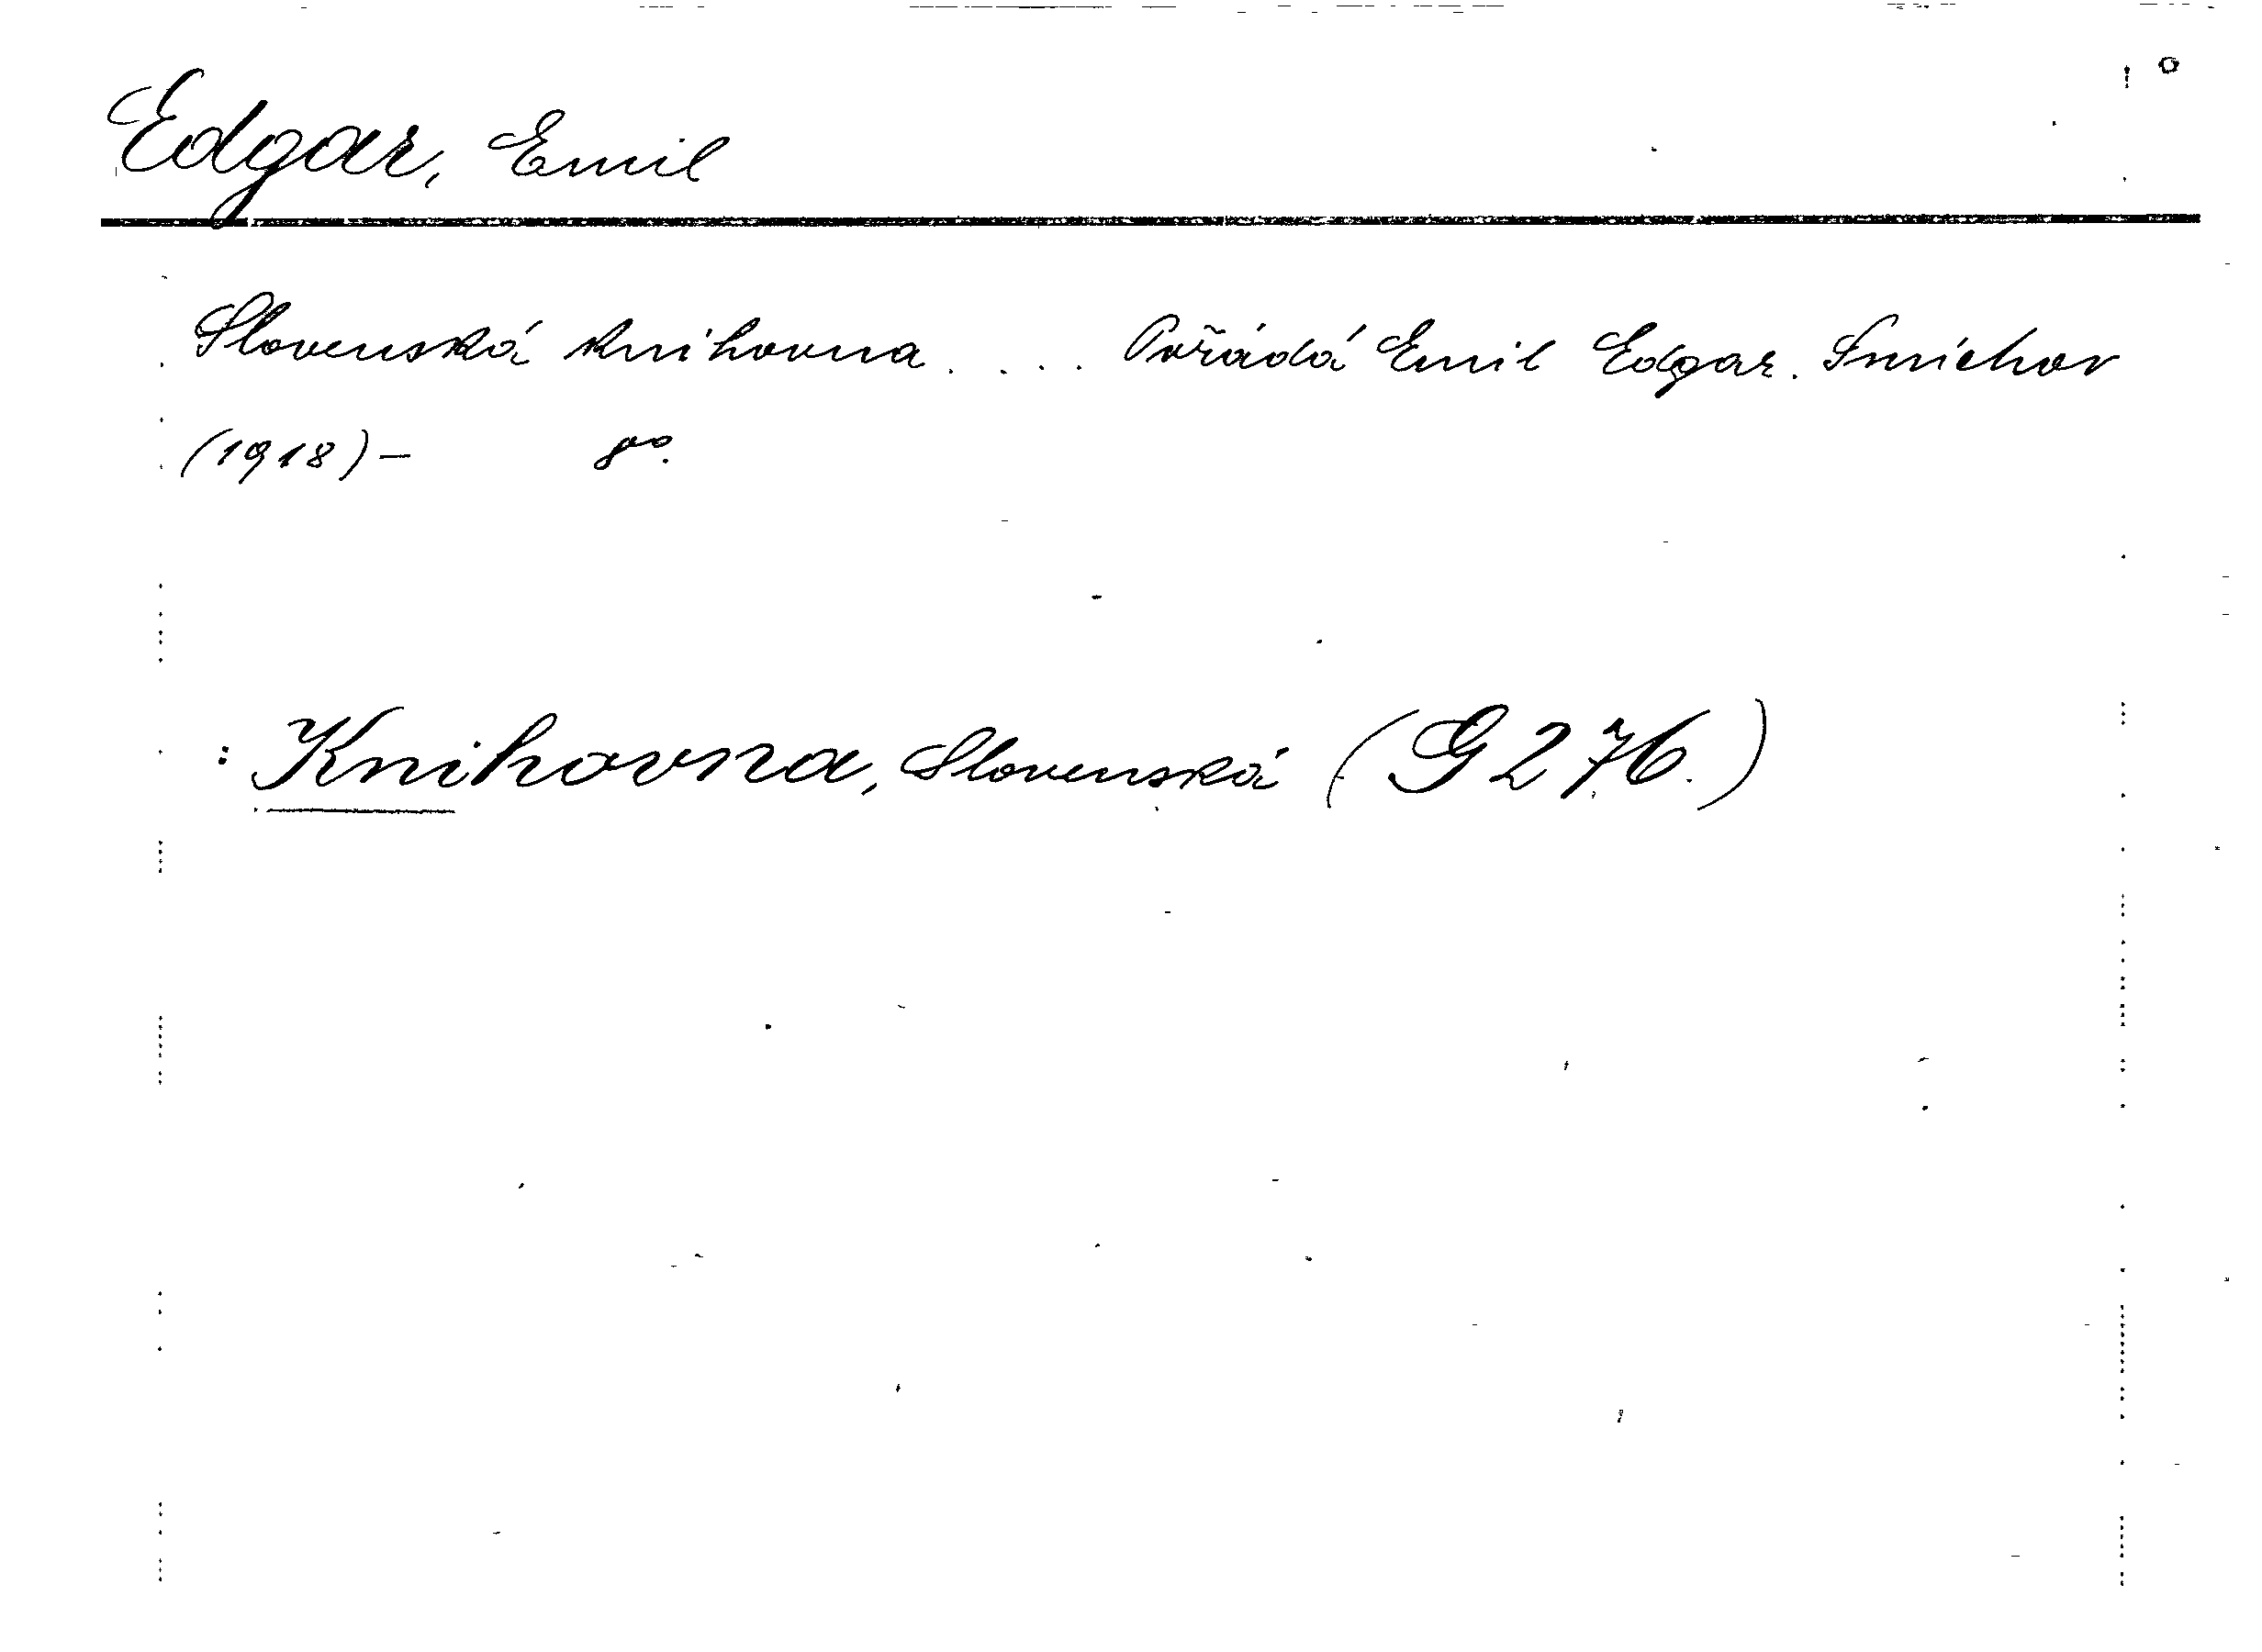 Edgar, Emil
Slovenská knihovna. ... Pořádá Emil Edgar. Smíchov
(1918)- 8°.
: Knihovna, Slovenská (G 276.)